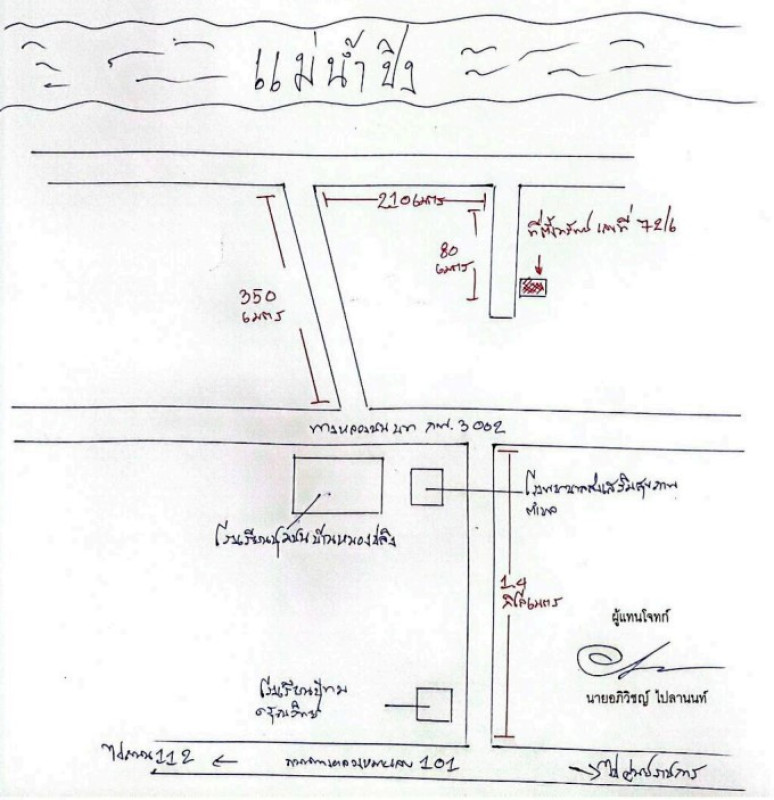 แม่น้ำปิง
210 เมตร
80
เมตร
ที่ตั้งทรัพย์ เลขที่ 72/6
350
เมตร
ทางหลวงชนบท กพ. 3002
โรงพยาบาลส่งเสริมสุขภาพ
ตำบล
โรงเรียนชุมชนบ้านหนองปลิง
1.4
กิโลเมตร
ผู้แทนโจทก์
นายอภิวิชญ์ ไปลานนท์
โรงเรียน
112
ทางหลวงหมายเลข 101